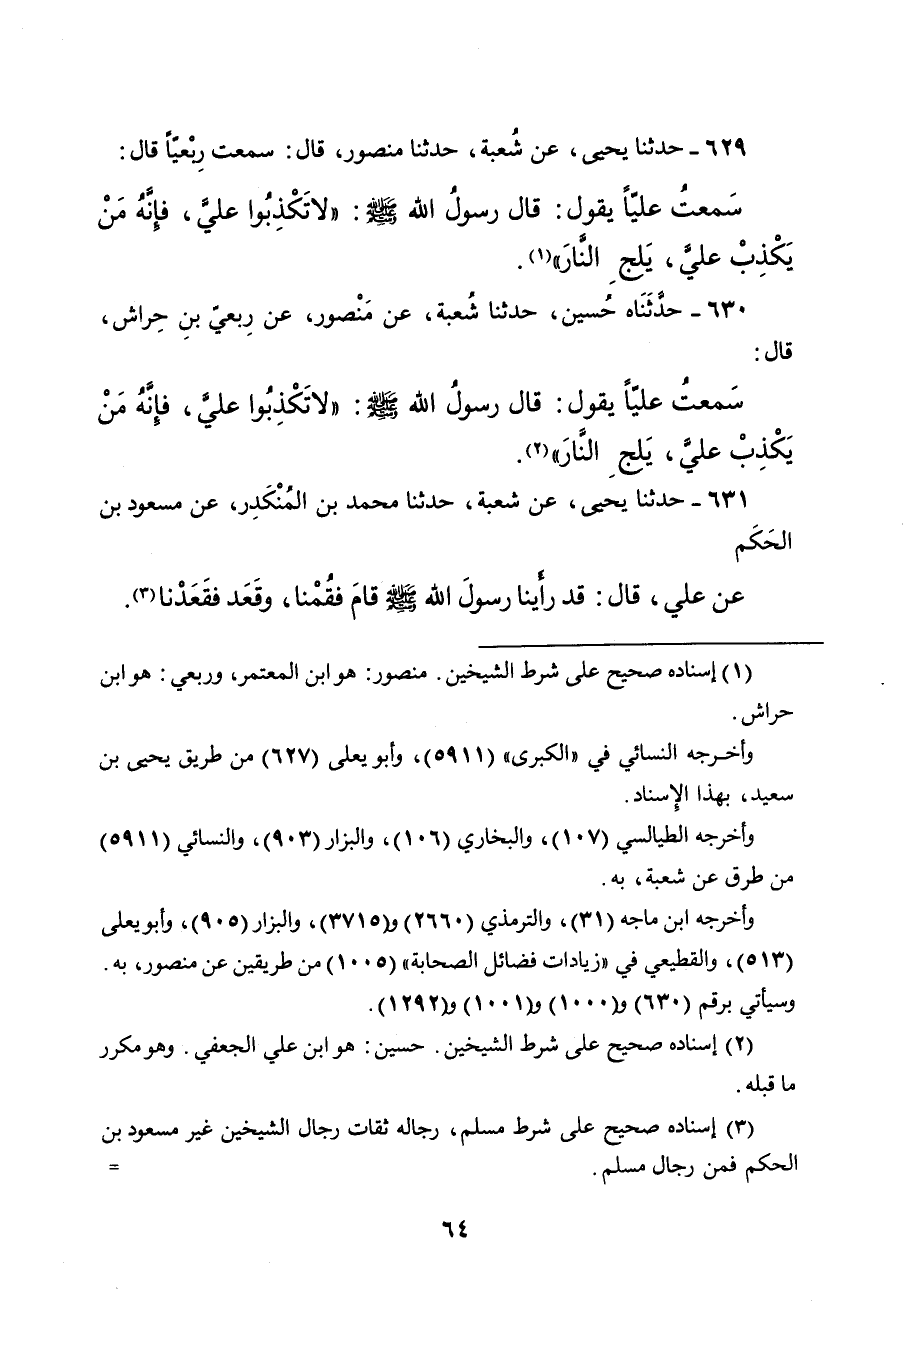 ٦٢٩ ـ حدثنا يحيى، عن شُعبة، حدثنا منصور، قال: سمعت رِبْعيّاً قال:
سَمعتُ عليّاً يقول: قال رسولُ الله ﷺ: «لاتَكْذِبُوا عليَّ، فإنَّهُ مَنْ
يَكْذِبْ عليَّ، يَلجِ النَّارَ»(١).
٦٣٠ ـ حدَّثَنَاه حُسين، حدثنا شُعبة، عن مَنْصور، عن رِبعيّ بنِ حِراش،
قال:
سَمعتُ عليّاً يقول: قال رسولُ الله ﷺ: «لاتَكْذِبُوا عليَّ، فإنَّهُ مَنْ
يَكْذِبْ عليَّ، يَلجِ النَّارَ»(٢).
٦٣١ ـ حدثنا يحيى، عن شعبة، حدثنا محمد بن المُنْكَدِر، عن مسعود بن
الحَكَم
عن علي، قال: قد رأَينا رسولَ الله ﷺ قامَ فقُمْنا، وقَعَد فقَعَدْنا(٣).
(١) إسناده صحيح على شرط الشيخين. منصور: هو ابن المعتمر، وربعي: هو ابن
حراش.
وأخرجه النسائي في «الكبرى» (٥٩١١)، وأبو يعلى (٦٢٧) من طريق يحيى بن
سعيد، بهذا الإسناد.
وأخرجه الطيالسي (١٠٧)، والبخاري (١٠٦)، والبزار (٩٠٣)، والنسائي (٥٩١١)
من طرق عن شعبة، به.
وأخرجه ابن ماجه (٣١)، والترمذي (٢٦٦٠) و(٣٧١٥)، والبزار (٩٠٥)، وأبو يعلى
(٥١٣)، والقطيعي في «زيادات فضائل الصحابة» (١٠٠٥) من طريقين عن منصور، به.
وسيأتي برقم (٦٣٠) و(١٠٠٠) و(١٠٠١) و(١٢٩٢).
(٢) إسناده صحيح على شرط الشيخين. حسين: هو ابن علي الجعفي. وهو مكرر
ما قبله.
(٣) إسناده صحيح على شرط مسلم، رجاله ثقات رجال الشيخين غير مسعود بن
الحكم فمن رجال مسلم. =
٦٤